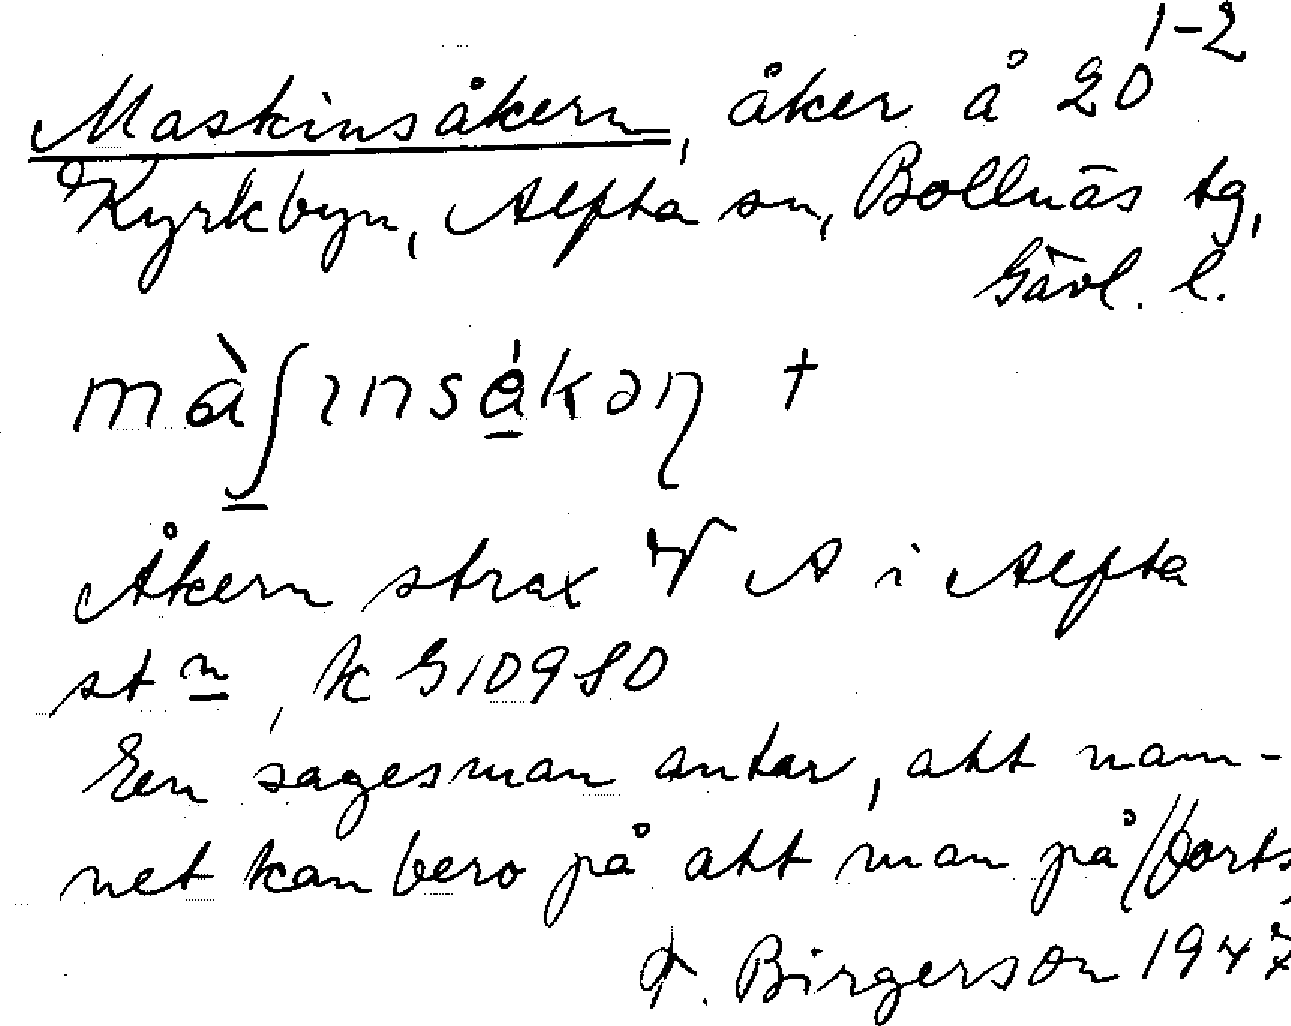 Maskinsåkern, åker å 20 1-2
Kyrkbyn, Alfta sn, Bollnäs tg,
Gävl. l.
màʃınsåkəɳ +
Åkern strax V A i Alfta
st n, k G10980
En sagesman antar, att nam-
net kan bero på att man på //forts.
F. Birgerson 1947